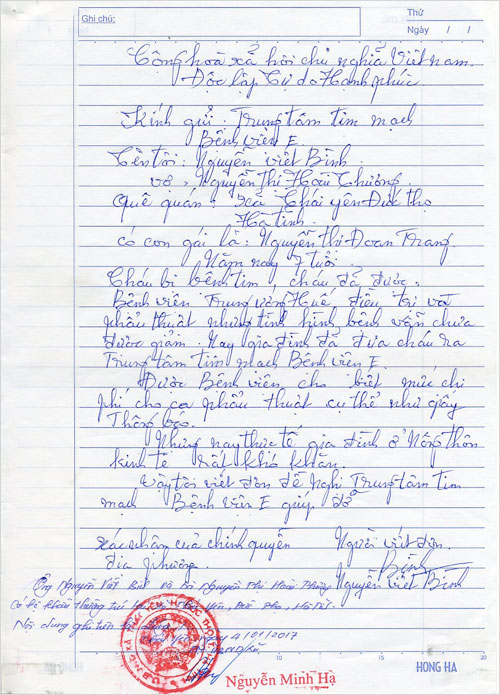 Ghi chú:
Thứ
Ngày / /
Cộng hoà xã hội chủ nghĩa Việt nam
Độc lập Tự do Hanh phúc
Kính gửi : Trung tâm tim mạch
Bệnh viện E
Tên tôi : Nguyễn viết Bình
vợ : Nguyễn Thị Hoài Thương
quê quán : xã Thái yên Đức thọ
Hà tĩnh
có con gái là : Nguyễn thị Đoan Trang
Năm nay 7 tuổi
Cháu bị bệnh tim, cháu đã được
Bệnh viên Trung ương Huế điều trị và
phẩu thuật nhưng tình hình bệnh vẫn chưa
được giảm. Nay gia đình đã đưa cháu ra
Trung tâm tim mạch Bệnh viện E
Được Bệnh viên cho biết mức chi
phí cho ca phẩu thuật cụ thể như giấy
Thông báo.
Nhưng nay thực tế gia đình ở Nông thôn
kinh tế rất khó khăn.
Vậy tôi viết đơn đề Nghi Trung tâm tim
mạch Bệnh viện E giúp đỡ
xác nhận của chính quyền Người viết đơn
địa phương. Bình
Ông Nguyễn Viết Bình và bà Nguyễn Thị Hoài Thương Nguyễn viết Bình
Có hộ khẩu thường trú
Nội dung ghi trên
4/01/2017
Nguyễn Minh Hạ
10 15 20
HONG HA